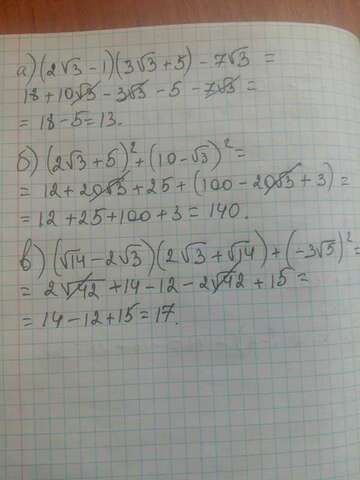 а) (2√3 - 1)(3√3 + 5) - 7√3 =
18 + 10√3 - 3√3 - 5 - 7√3 =
= 18 - 5 = 13.
б) (2√3 + 5)² + (10 - √3)² =
= 12 + 20√3 + 25 + (100 - 20√3 + 3) =
= 12 + 25 + 100 + 3 = 140.
в) (√14 - 2√3)(2√3 + √14) + (-3√5)² =
= 2√42 + 14 - 12 - 2√42 + 15 =
= 14 - 12 + 15 = 17.